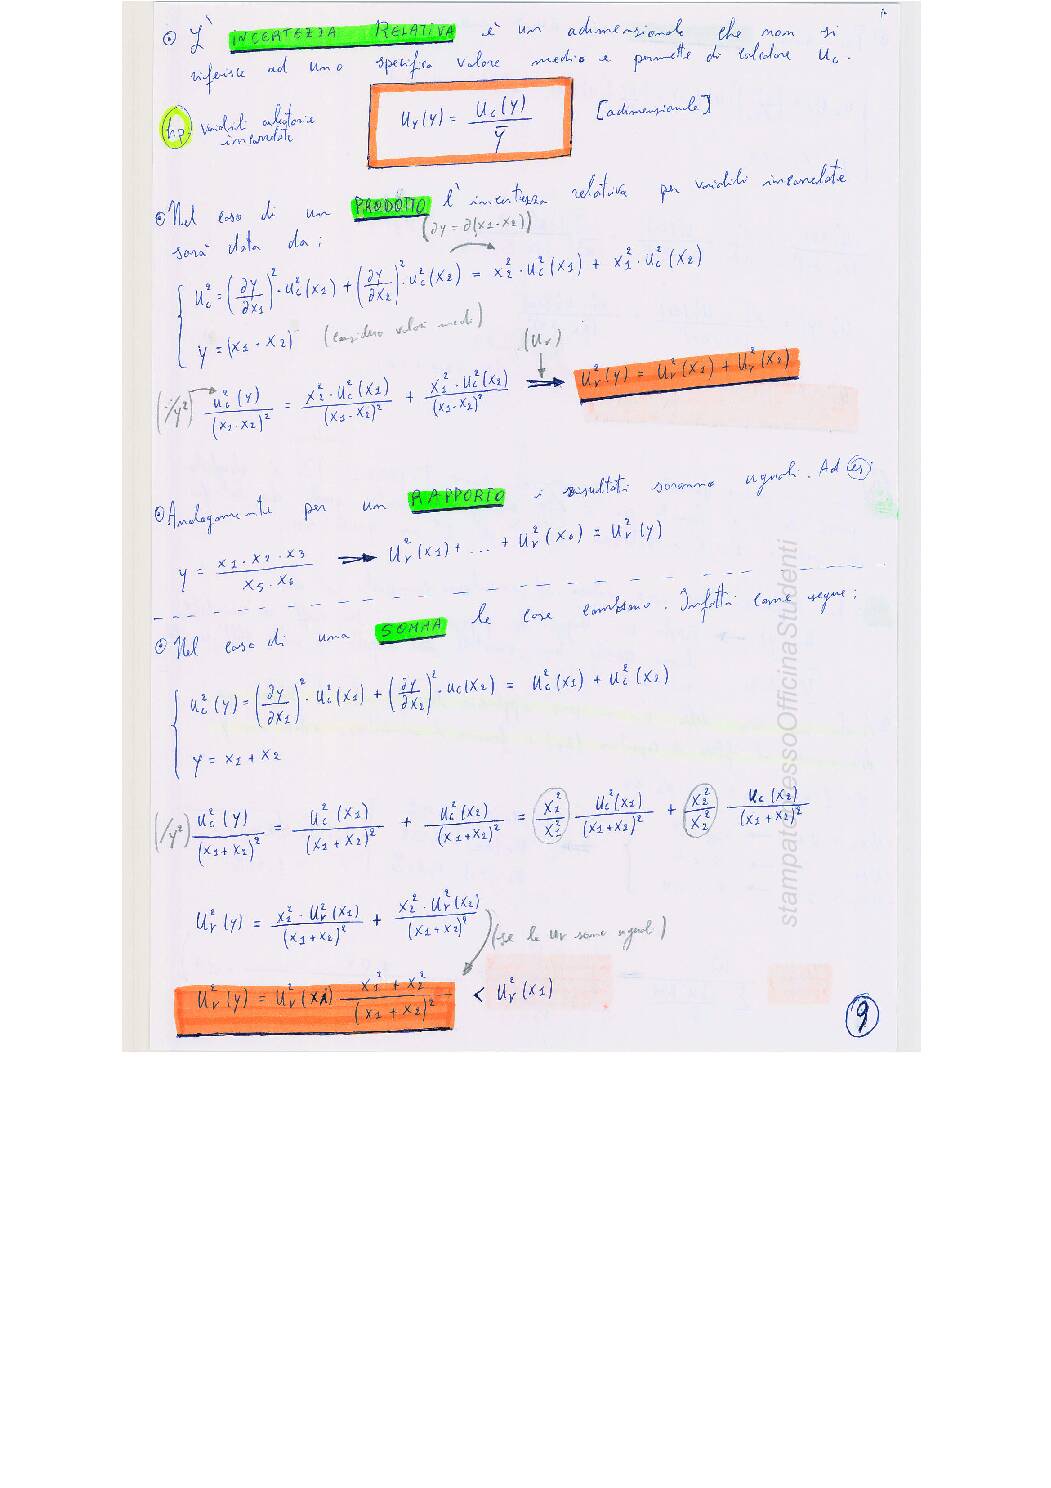 ⊙ L' INCERTEZZA RELATIVA è un adimensionale che non si
riferisce ad uno specifico valore medio e permette di calcolare Uc.
hp. variabili aleatorie incorrelate
Ur(y) = Uc(y) / ȳ [adimensionale]
⊙ Nel caso di un PRODOTTO l'incertezza relativa per variabili incorrelate
sarà data da:
(∂y = ∂(x1·x2))
Uc² = (∂y/∂x1)² · Uc²(x1) + (∂y/∂x2)² · Uc²(x2) = x2² · Uc²(x1) + x1² · Uc²(x2)
y = (x1 · x2) (considero valori medi)
(Ur)
(·/y²) Uc²(y)/(x1·x2)² = x2² · Uc²(x1)/(x1·x2)² + x1² · Uc²(x2)/(x1·x2)² ⇒ Ur²(y) = Ur²(x1) + Ur²(x2)
⊙ Analogamente per un RAPPORTO i risultati saranno uguali. Ad es:
y = x1 · x2 · x3 / x5 · x6 ⇒ Ur²(x1) + ... + Ur²(x6) = Ur²(y)
⊙ Nel caso di una SOMMA le cose cambiano. Infatti come segue:
Uc²(y) = (∂y/∂x1)² · Uc²(x1) + (∂y/∂x2)² · Uc(x2) = Uc²(x1) + Uc²(x2)
y = x1 + x2
(/y²) Uc²(y)/(x1+x2)² = Uc²(x1)/(x1+x2)² + Uc²(x2)/(x1+x2)² = x1²/x1² Uc²(x1)/(x1+x2)² + x2²/x2² Uc(x2)/(x1+x2)²
Ur²(y) = x1² · Ur²(x1)/(x1+x2)² + x2² · Ur²(x2)/(x1+x2)²
(se le Ur sono uguali)
Ur²(y) = Ur²(x1) x1² + x2² / (x1+x2)² < Ur²(x1)
9
stampatopressoOfficinaStudenti